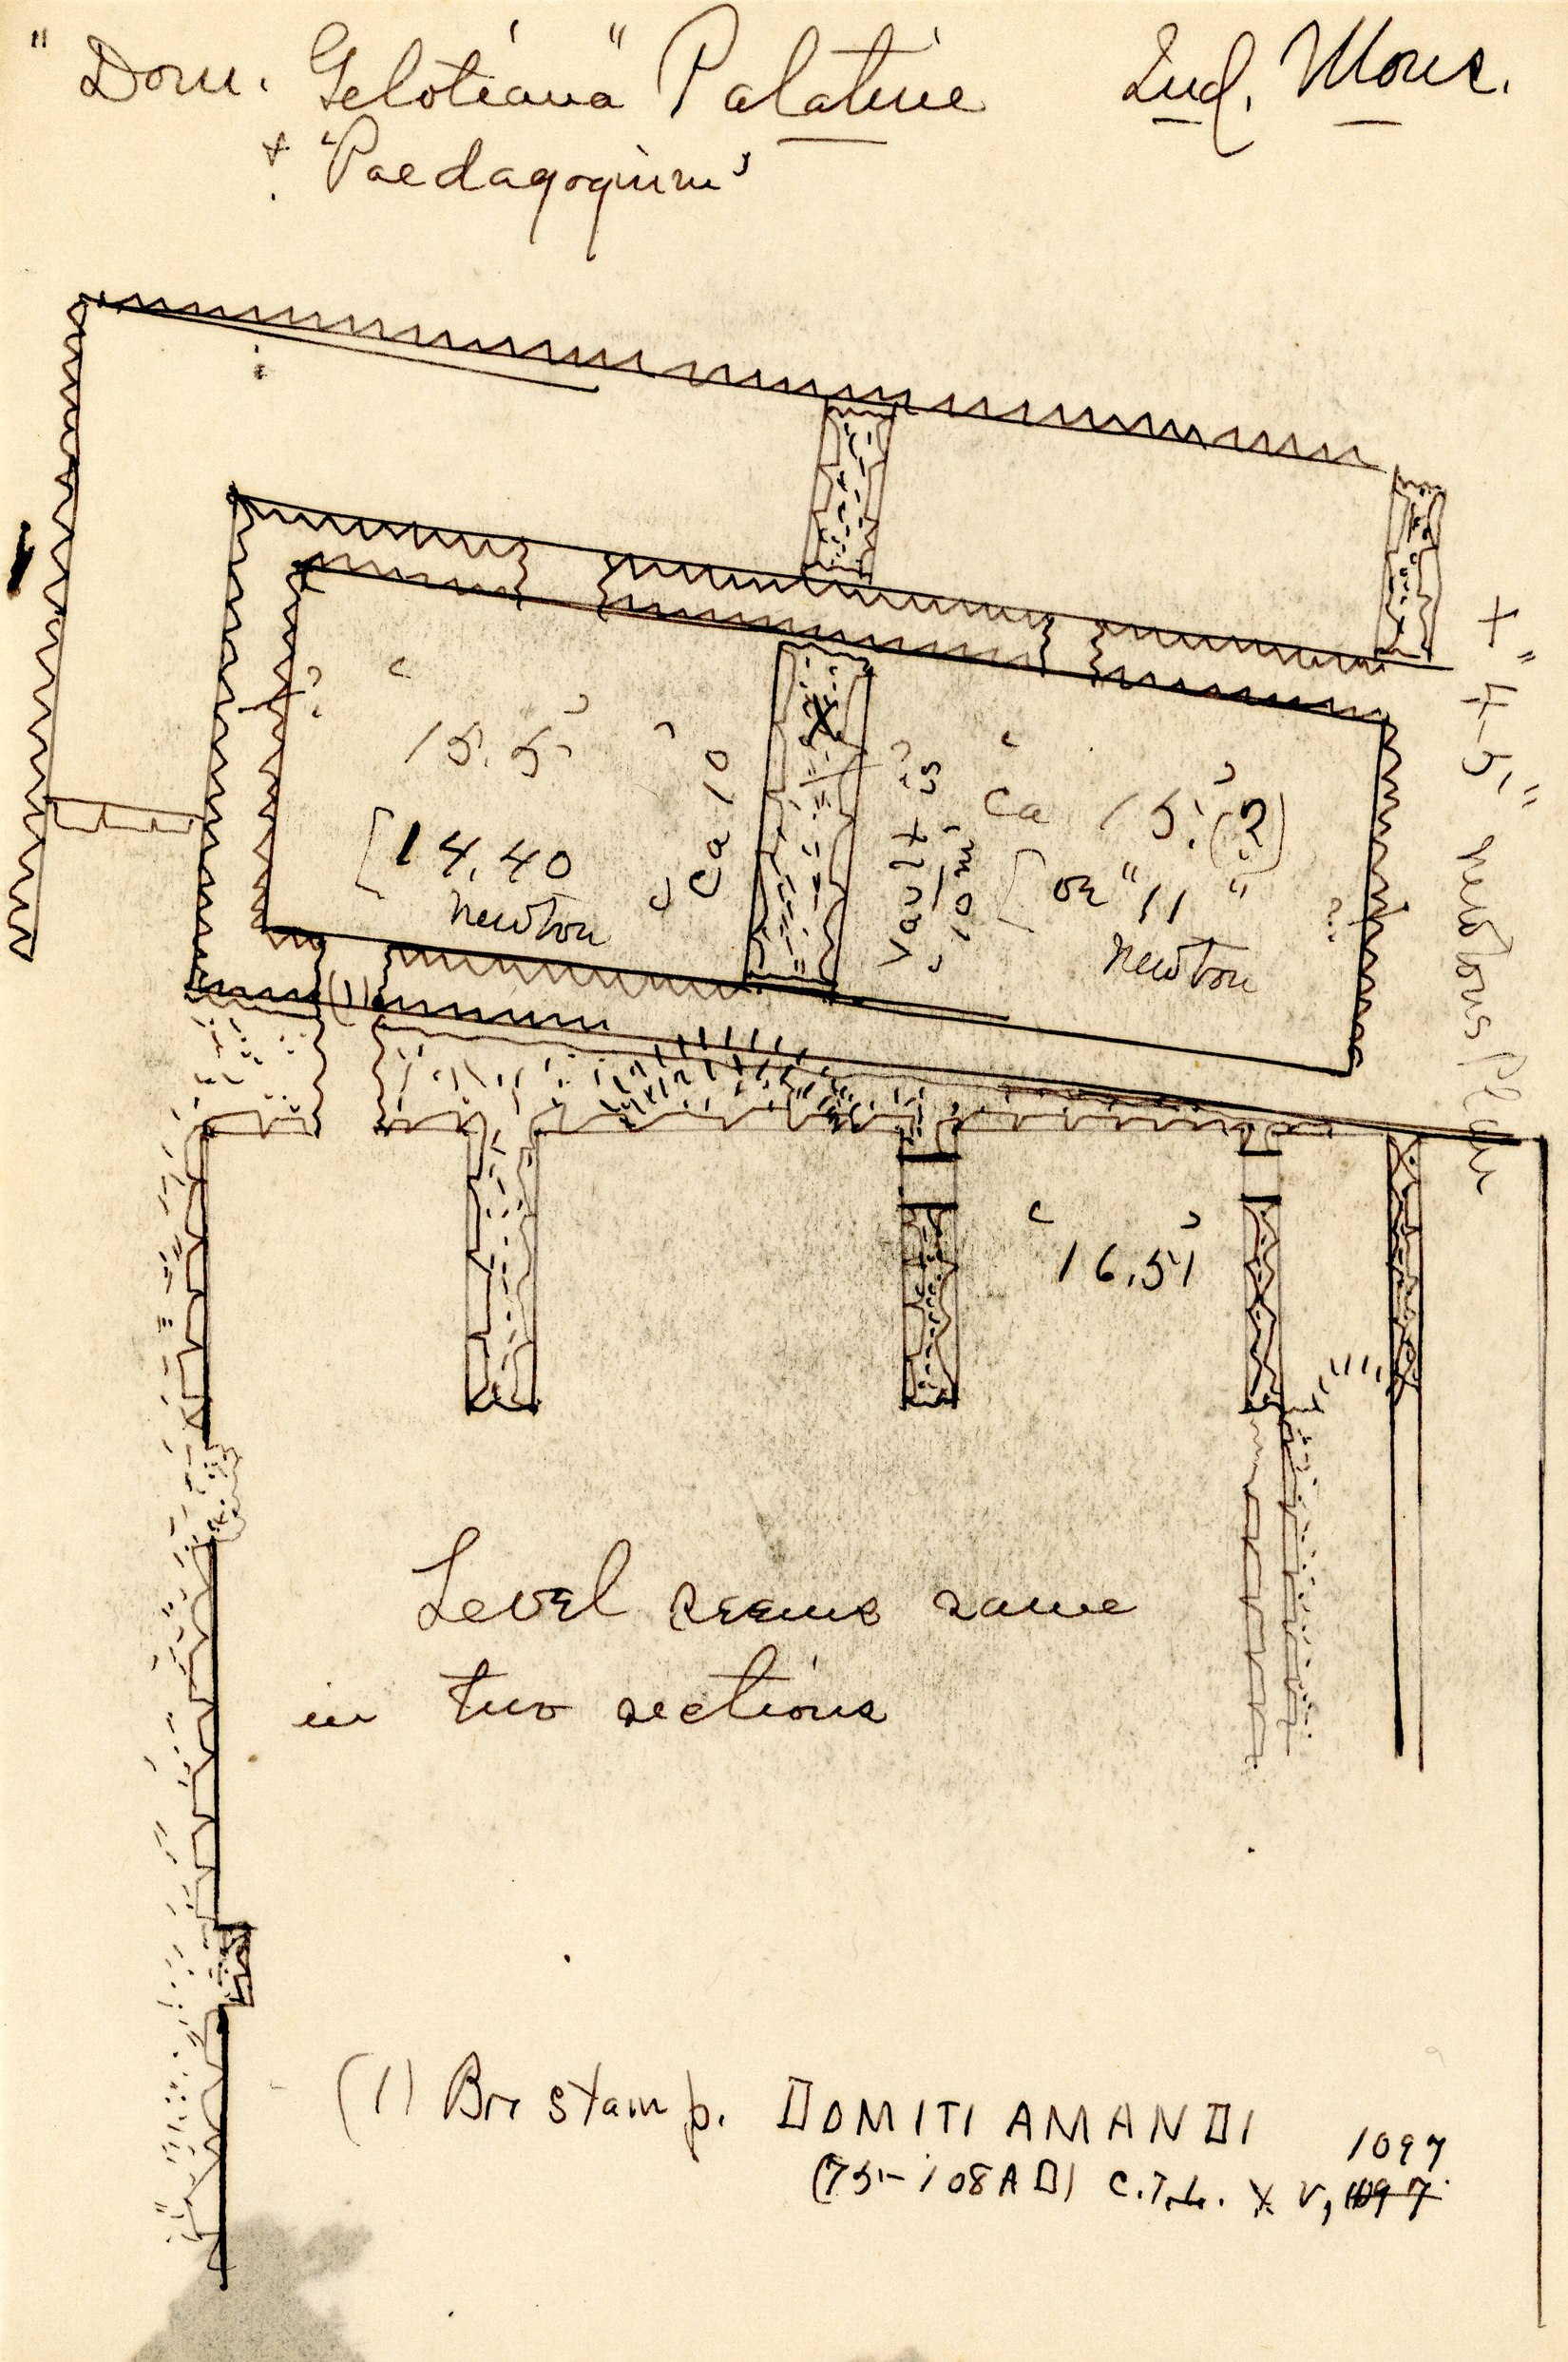 "Dom. Gelotiana" Palatine
Lud. Mons.
+ 'Paedagogium'
15.5
[14.40
newton
ca 10
vault is
10 m
ca 15. (?)
[or "11"
newton
+ "4-5" newtons Plan
(1)
16.51
Level seems same
in two sections
(1) Br. stamp. DOMITI AMANDI
1097
(75-108 AD) C.I.L. XV, 1097